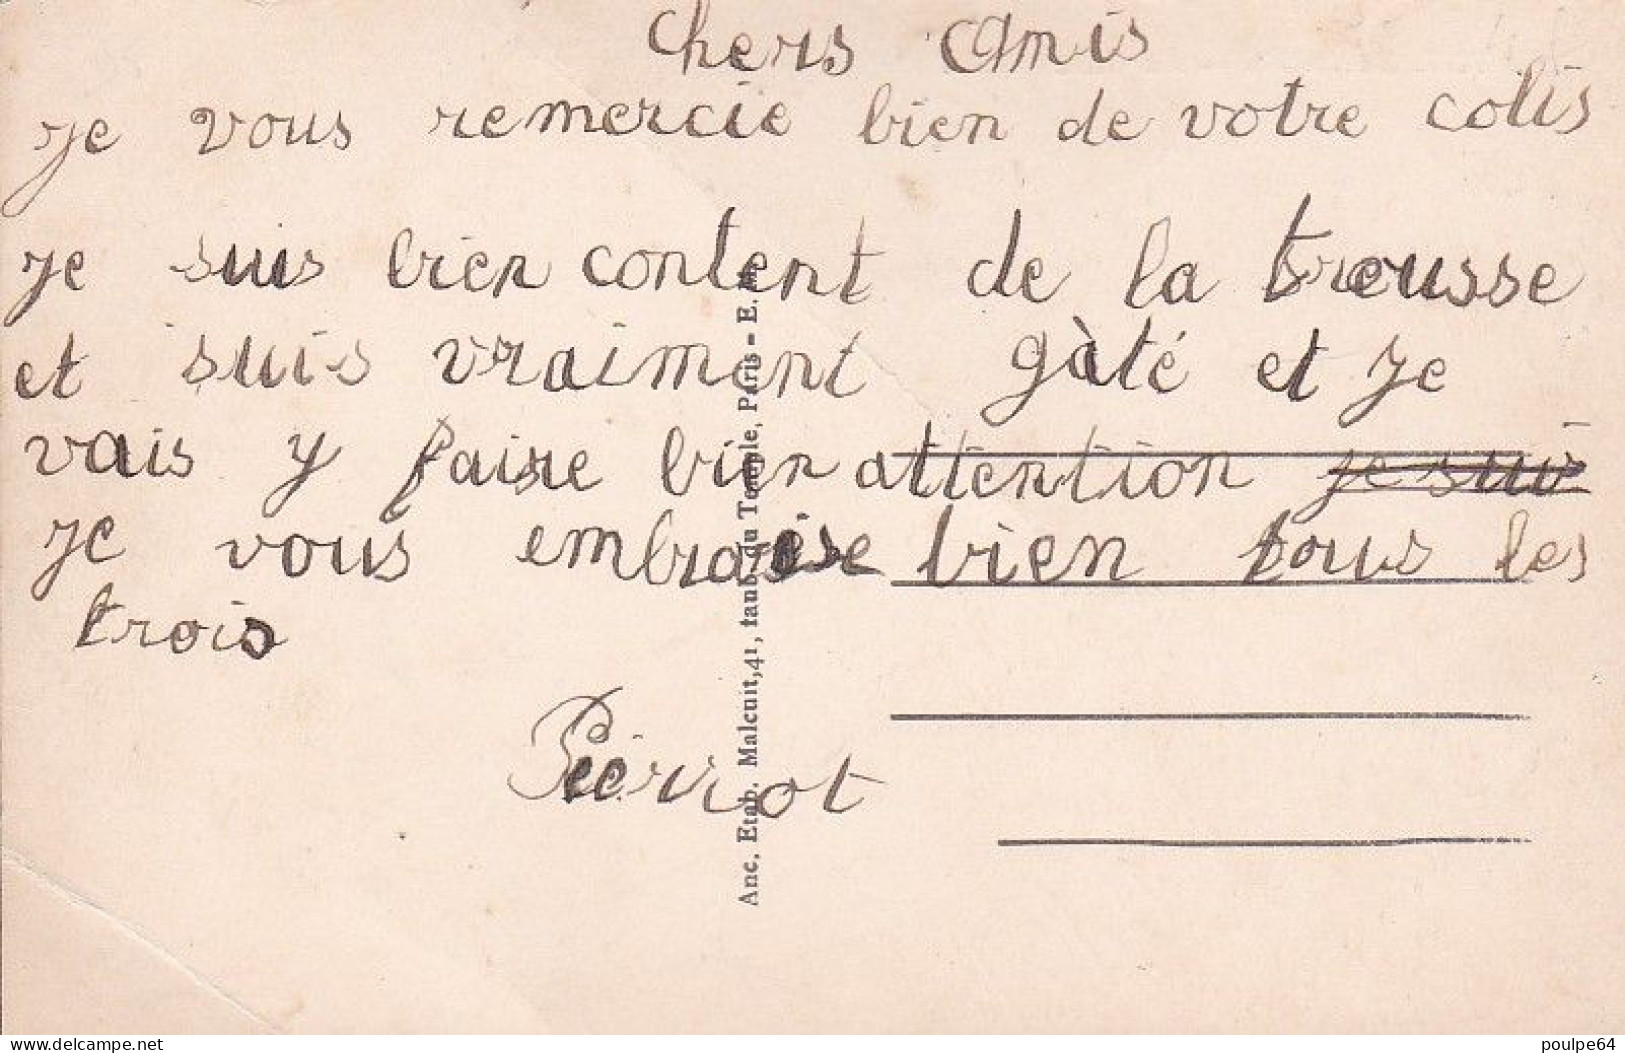 Chers Amis
je vous remercie bien de votre colis
je suis bien content de la trousse
et suis vraiment gàté et je
vais y faire bien attention ~~je suis~~
je vous embrasse bien tous les
trois
Pierrot
Anc. Etab. Malcuit, 41, faub. du Temple, Paris - E. M.
delcampe.net
poulpe64